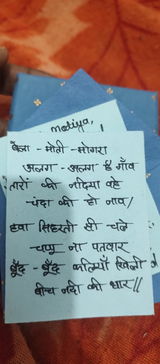 matiya,
बेला - मोती - मोगरा
अलग - अलग हैं गाँव
तारों की नदिया बहे
चंदा की हो नाव।
हवा सिहरती सी चले
चप्पू ना पतवार
बूँद - बूँद कलियाँ खिली
बीच नदी की धार॥